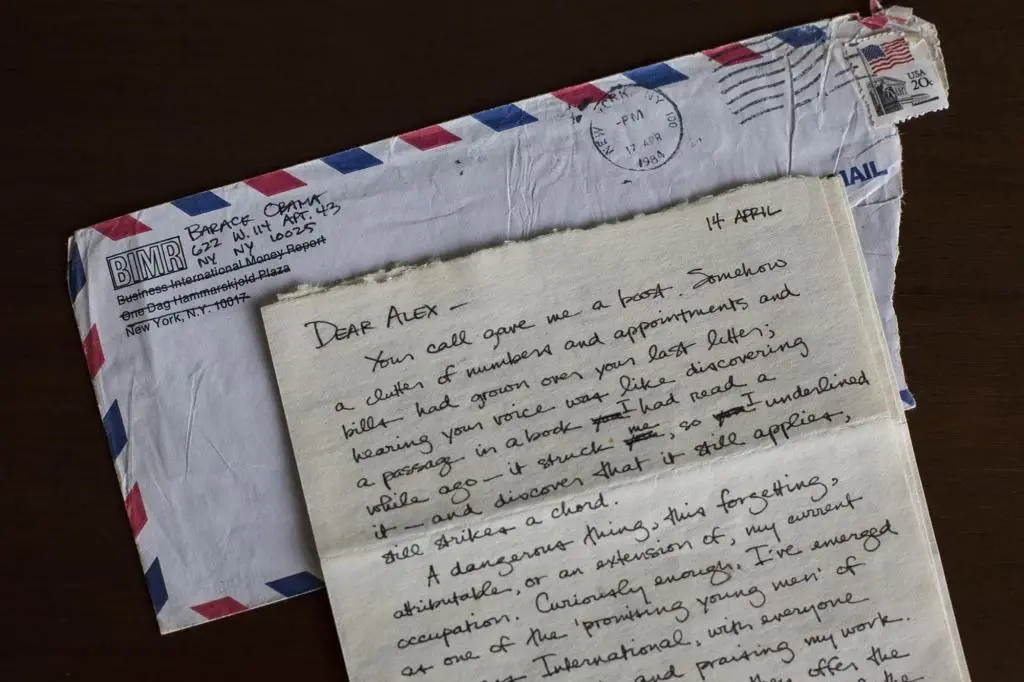 USA
20c
NEW YORK, NY 100
-PM
17 APR
1984
MAIL
BARACK OBAMA
622 W. 114 APT. 43
NY NY 10025
BIMR
Business International Money Report
One Dag Hammarskjold Plaza
New York, N.Y. 10017
14 APRIL
DEAR ALEX —
Your call gave me a boost. Somehow
a clutter of numbers and appointments and
bills had grown over your last letter;
hearing your voice was like discovering
a passage in a book you I had read a
while ago — it struck you me, so you I underlined
it — and discover that it still applies,
still strikes a chord.
A dangerous thing, this forgetting,
attributable, or an extension of, my current
occupation. Curiously enough, I've emerged
as one of the 'promising young men' of
International, with everyone
and praising my work.
offer the